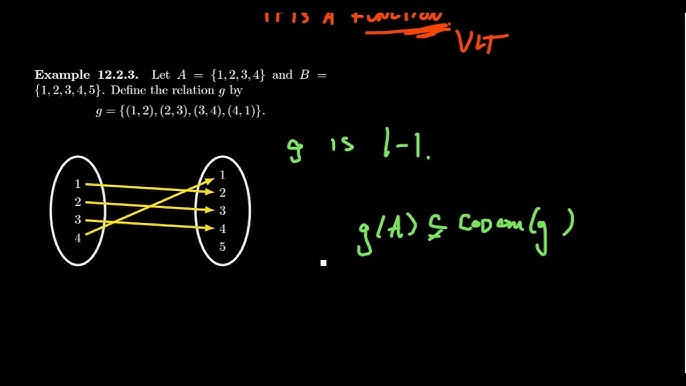 IT IS A FUNCTION
VLT
Example 12.2.3. Let A = {1, 2, 3, 4} and B =
{1, 2, 3, 4, 5}. Define the relation g by
g = {(1, 2), (2, 3), (3, 4), (4, 1)}.
g is 1-1.
1
2
3
4
1
2
3
4
5
g(A) ⊊ Codom(g)